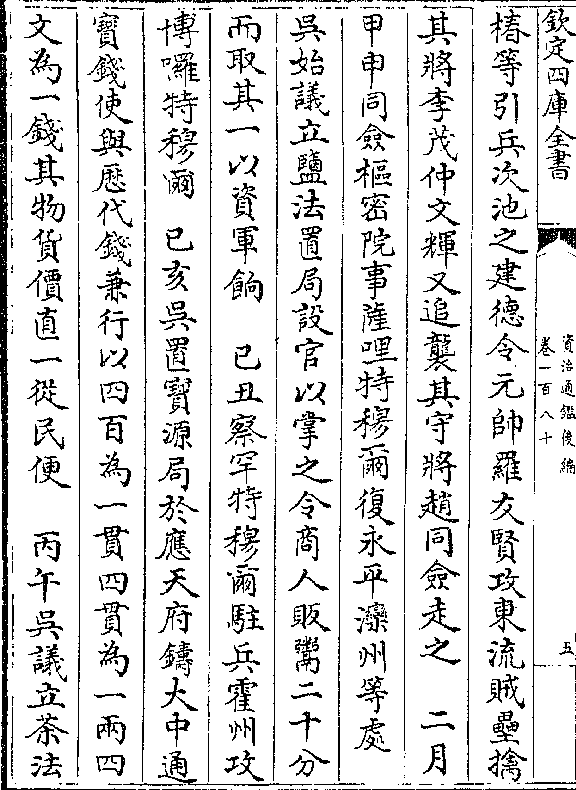 欽定四庫全書
資治通鑑後編
卷一百八十
五
樁等引兵次池之建德令元帥羅友賢攻東流賊壘擒
其將李茂仲文輝又追襲其守將趙同僉走之　二月
甲申同僉樞密院事薩哩特穆爾復永平灤州等處
吳始議立鹽法置局設官以掌之令商人販鬻二十分
而取其一以資軍餉　己丑察罕特穆爾駐兵霍州攻
博囉特穆爾　己亥吳置寳源局於應天府鑄大中通
寳錢使與歴代錢兼行以四百為一貫四貫為一兩四
文為一錢其物貨價直一從民便　丙午吳議立茶法